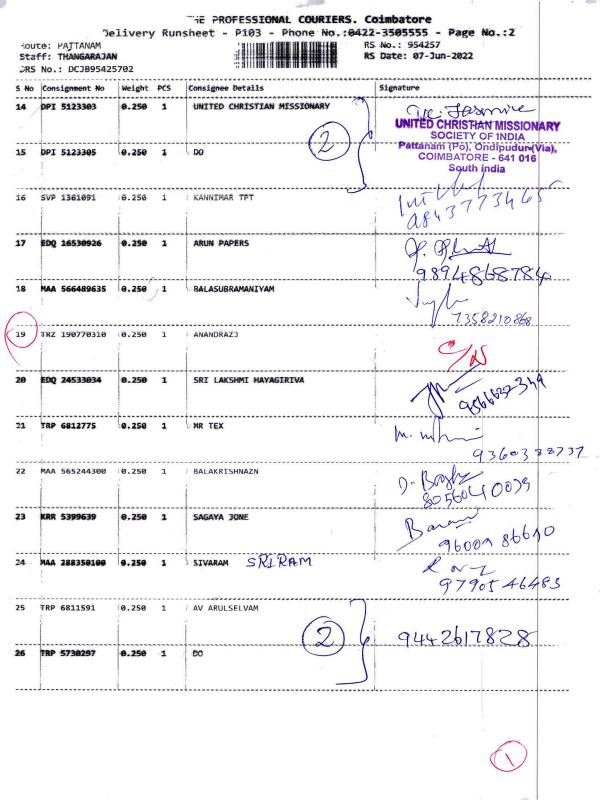 THE PROFESSIONAL COURIERS. Coimbatore
Delivery Runsheet - P103 - Phone No.:0422-3505555 - Page No.:2
Route: PATTANAM RS No.: 954257
Staff: THANGARAJAN RS Date: 07-Jun-2022
DRS No.: DCJB95425702
S No Consignment No Weight PCS Consignee Details Signature
14 DPI 5123303 0.250 1 UNITED CHRISTIAN MISSIONARY
2
UNITED CHRISTIAN MISSIONARY
SOCIETY OF INDIA
Pattanam (Po), Ondipudur(Via),
COIMBATORE - 641 016
South india
15 DPI 5123305 0.250 1 DO
16 SVP 1361091 0.250 1 KANNIMAR TPT
9843773465
17 EDQ 16530926 0.250 1 ARUN PAPERS
9894868784
18 MAA 566489635 0.250 1 BALASUBRAMANIYAM
7358210868
19 TRZ 190770310 0.250 1 ANANDRAZJ
20 EDQ 24533034 0.250 1 SRI LAKSHMI HAYAGIRIVA
21 TRP 6812775 0.250 1 MR TEX
22 MAA 565244300 0.250 1 BALAKRISHNAZN
8056040039
23 KRR 5399639 0.250 1 SAGAYA JONE
24 MAA 288350100 0.250 1 SIVARAM SRIRAM
9790546483
25 TRP 6811591 0.250 1 AV ARULSELVAM
2 9442617828
26 TRP 5730297 0.250 1 DO
1